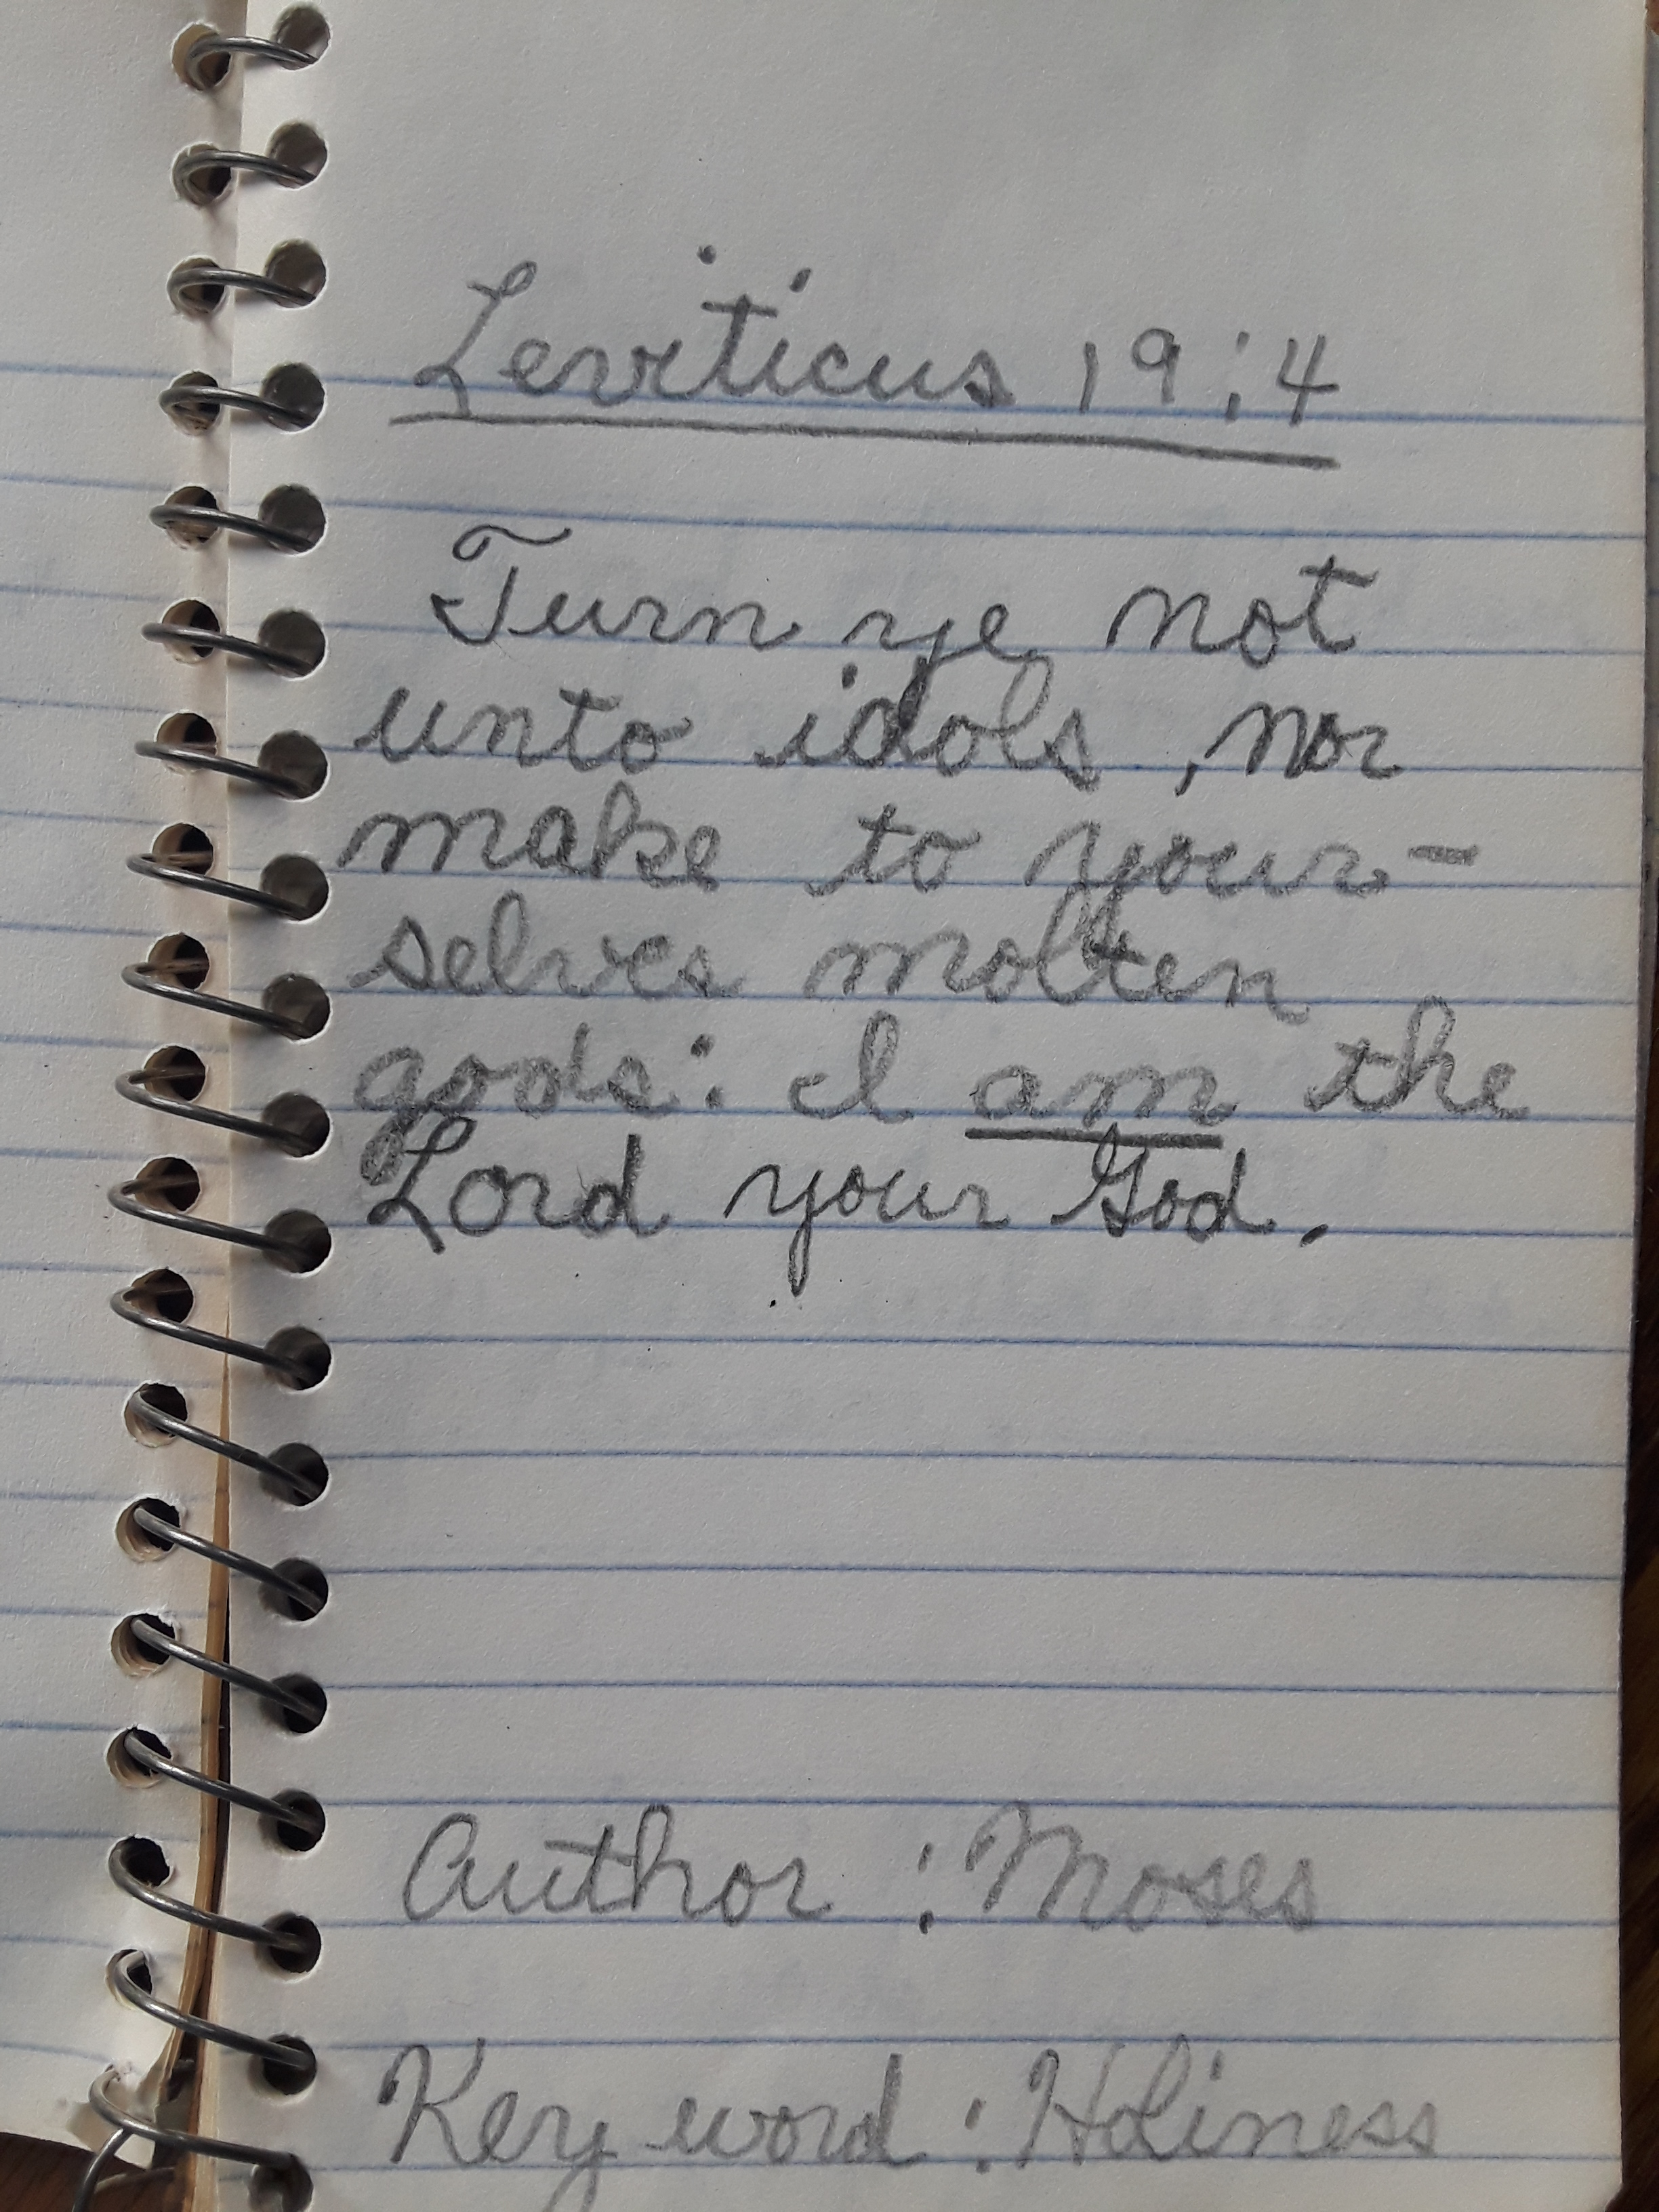 Leviticus 19:4
Turn ye not
unto idols, nor
make to your-
selves molten
gods: I am the
Lord your God.
Author : Moses
Key word : Holiness